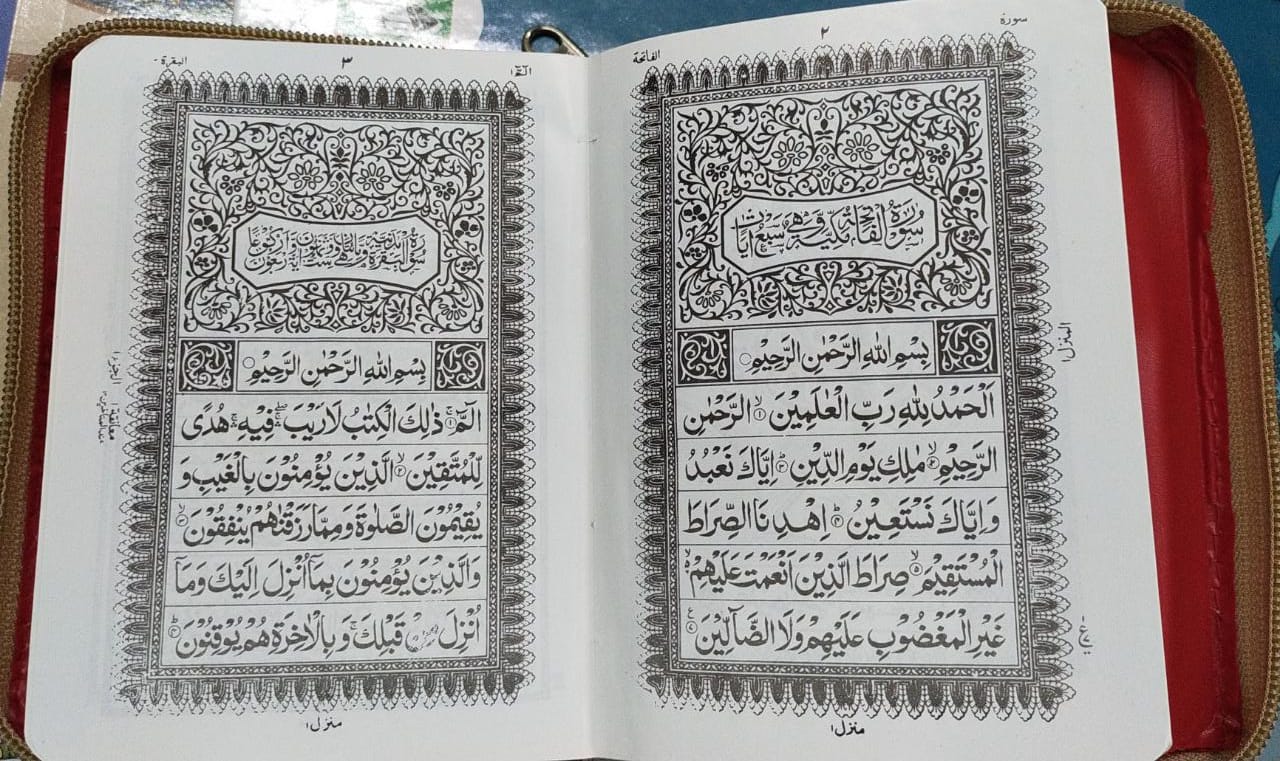 سورة
٢
الفاتحة
سُوْرَةُ الْفَاتِحَةِ مَكِّيَّةٌ وَّهِيَ سَبْعُ اٰيَاتٍ
بِسْمِ اللّٰهِ الرَّحْمٰنِ الرَّحِيْمِ
اَلْحَمْدُ لِلّٰهِ رَبِّ الْعٰلَمِيْنَ ۙ﴿١﴾ الرَّحْمٰنِ
الرَّحِيْمِ ۙ﴿٢﴾ مٰلِكِ يَوْمِ الدِّيْنِ ؕ﴿٣﴾ اِيَّاكَ نَعْبُدُ
وَ اِيَّاكَ نَسْتَعِيْنُ ؕ﴿٤﴾ اِهْدِ نَا الصِّرَاطَ
الْمُسْتَقِيْمَ ۙ﴿٥﴾ صِرَاطَ الَّذِيْنَ اَنْعَمْتَ عَلَيْهِمْ ۙ۬﴿٦﴾
غَيْرِ الْمَغْضُوْبِ عَلَيْهِمْ وَلَا الضَّآلِّيْنَ ﴿٧﴾
المنزل ١
منزل ١
الٓمّٓ ١
٣
البقرة
بِسْمِ اللّٰهِ الرَّحْمٰنِ الرَّحِيْمِ
الٓمّٓ ۚ﴿١﴾ ذٰلِكَ الْكِتٰبُ لَا رَيْبَ ۛۖ فِيْهِ ۛۚ هُدًى
لِّلْمُتَّقِيْنَ ۙ﴿٢﴾ الَّذِيْنَ يُؤْمِنُوْنَ بِالْغَيْبِ وَ
يُقِيْمُوْنَ الصَّلٰوةَ وَمِمَّا رَزَقْنٰهُمْ يُنْفِقُوْنَ ۙ﴿٣﴾
وَالَّذِيْنَ يُؤْمِنُوْنَ بِمَآ اُنْزِلَ اِلَيْكَ وَمَآ
اُنْزِلَ مِنْ قَبْلِكَ ۚ وَ بِالْاٰخِرَةِ هُمْ يُوْقِنُوْنَ ؕ﴿٤﴾
منزل ١